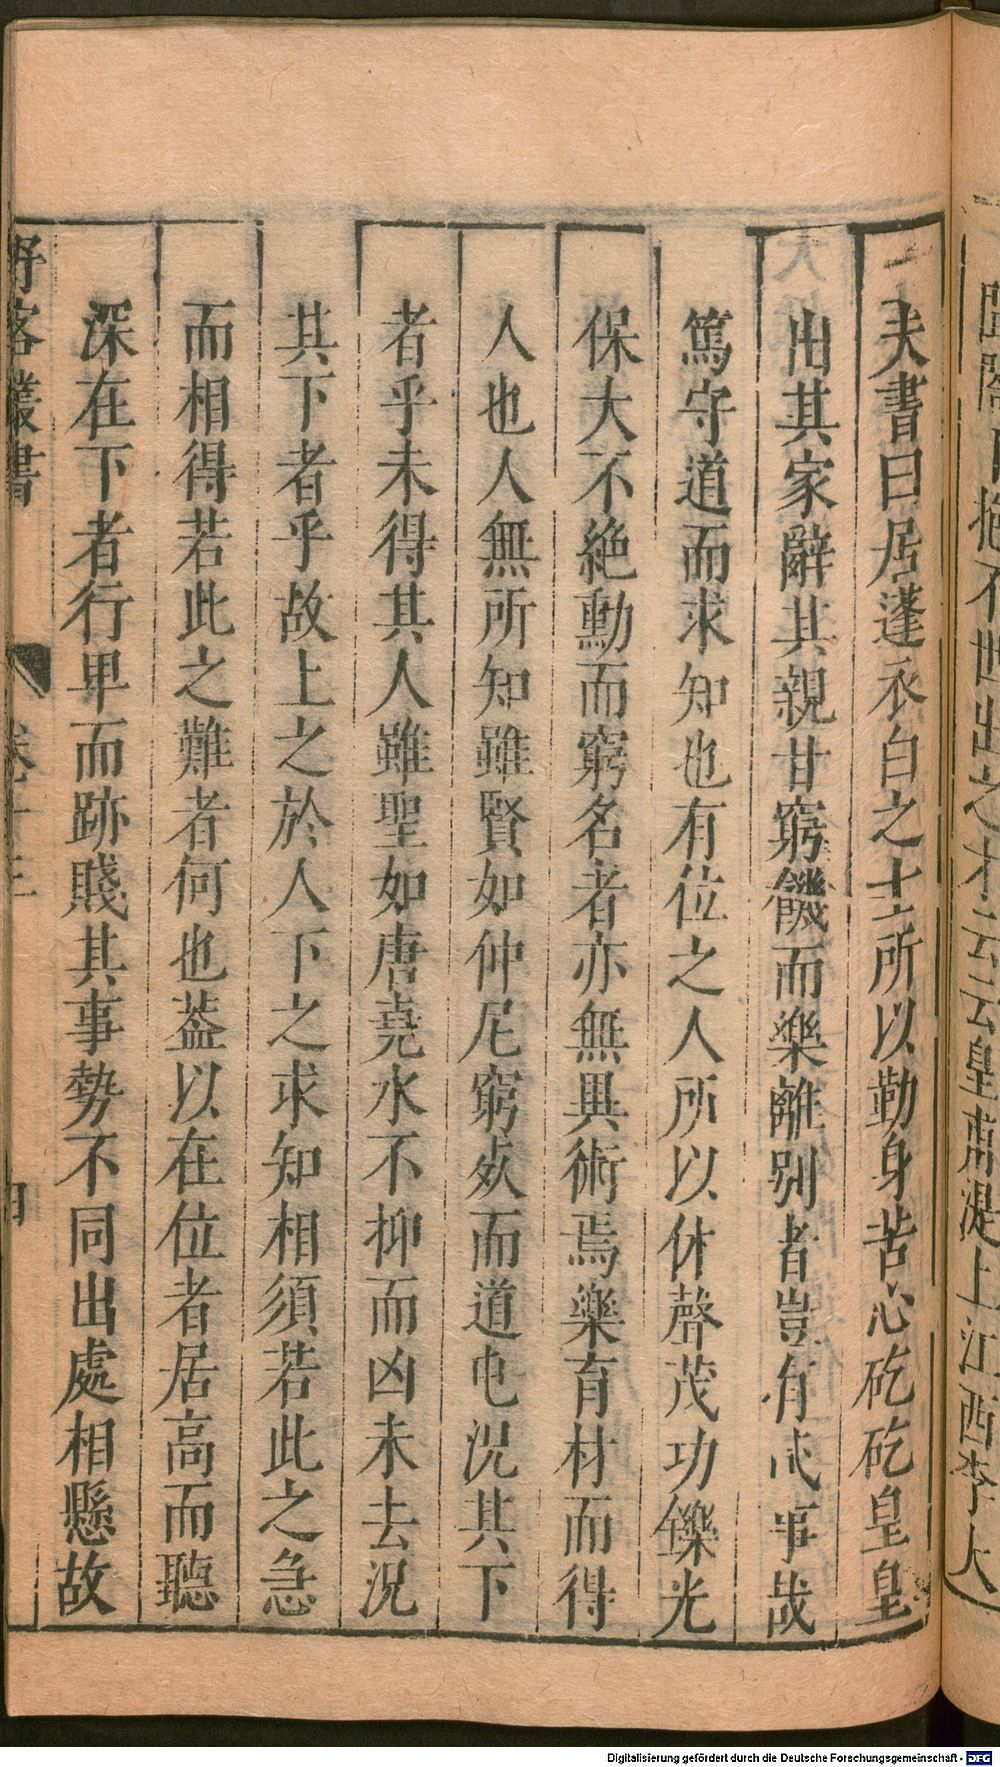 抱不世出之才云云皇甫湜上江西李大
夫書曰居蓬衣白之士所以勤身苦心矻矻皇皇
出其家辭其親甘窮饑而樂離別者豈有貳事哉
篤守道而求知也有位之人所以休聲茂功鑠光
保大不絶勳而窮名者亦無異術焉樂育材而得
人也人無所知雖賢如仲尼窮死而道屯況其下
者乎未得其人雖聖如唐堯水不抑而凶未去況
其下者乎故上之於人下之求知相須若此之急
而相得若此之難者何也葢以在位者居高而聽
深在下者行卑而跡賤其事勢不同出處相懸故
野客叢書
卷十三
四
Digitalisierung gefördert durch die Deutsche Forschungsgemeinschaft - DFG